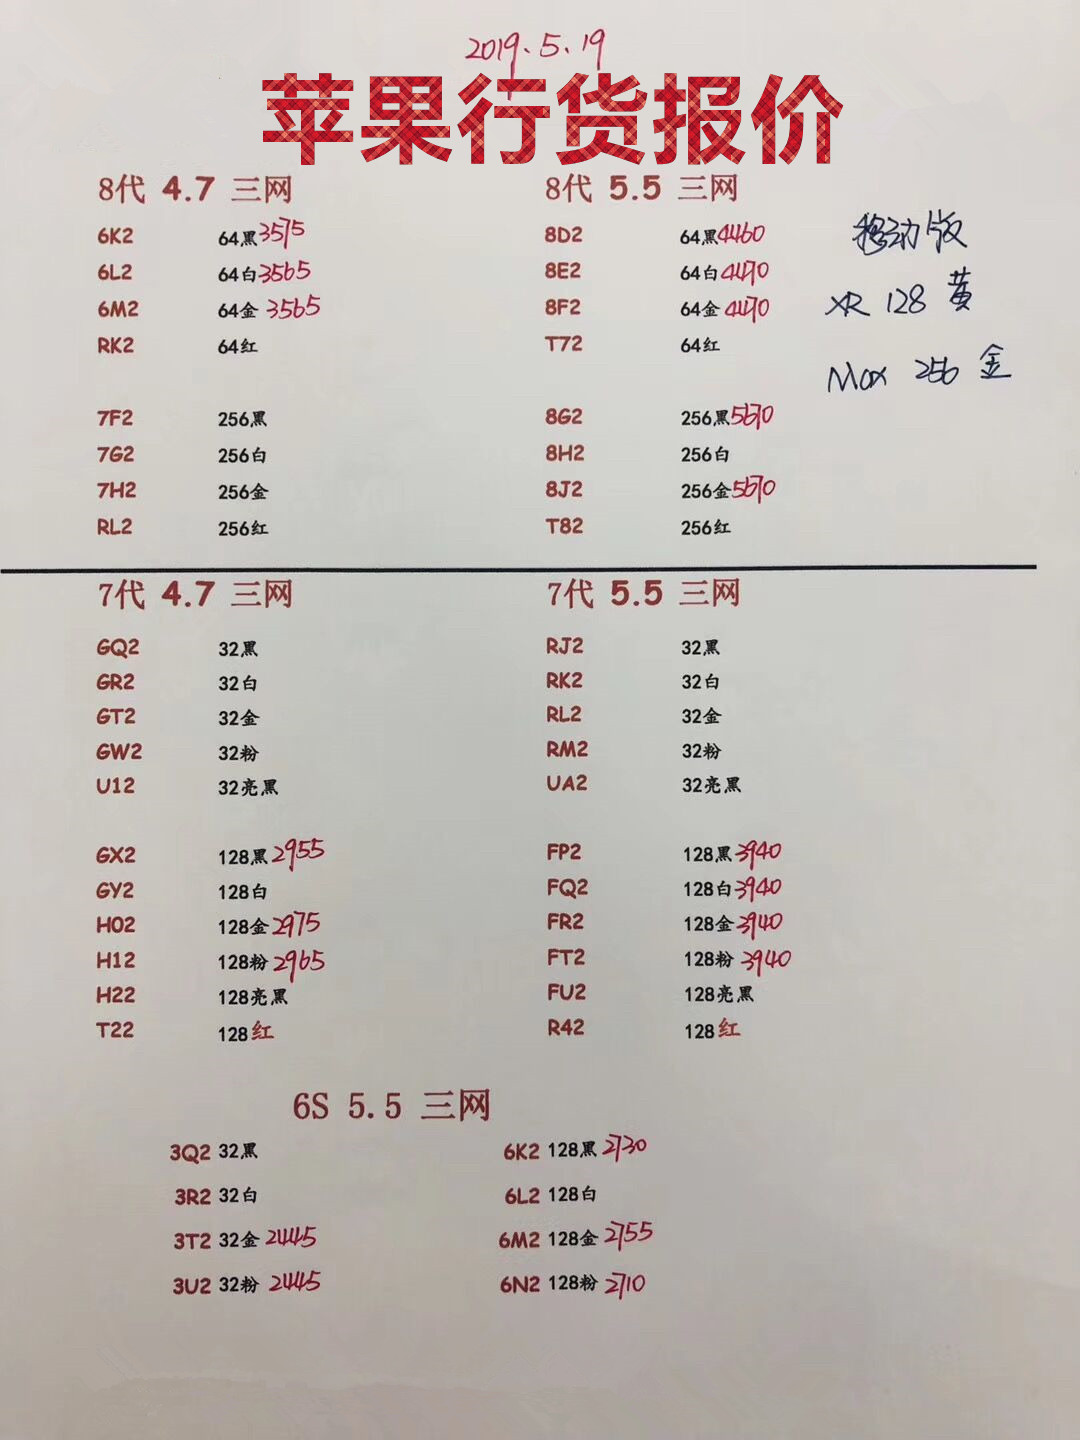 2019.5.19
苹果行货报价
8代 4.7 三网
6K2 64黑3575
6L2 64白3565
6M2 64金 3565
RK2 64红
7F2 256黑
7G2 256白
7H2 256金
RL2 256红
8代 5.5 三网
8D2 64黑4460
8E2 64白4470
8F2 64金 4470
T72 64红
8G2 256黑5670
8H2 256白
8J2 256金5670
T82 256红
移动版
XR 128 黄
Max 256 金
7代 4.7 三网
GQ2 32黑
GR2 32白
GT2 32金
GW2 32粉
U12 32亮黑
GX2 128黑2955
GY2 128白
H02 128金2975
H12 128粉2965
H22 128亮黑
T22 128红
7代 5.5 三网
RJ2 32黑
RK2 32白
RL2 32金
RM2 32粉
UA2 32亮黑
FP2 128黑3940
FQ2 128白3940
FR2 128金3940
FT2 128粉 3940
FU2 128亮黑
R42 128红
6S 5.5 三网
3Q2 32黑
3R2 32白
3T2 32金 2445
3U2 32粉 2445
6K2 128黑2730
6L2 128白
6M2 128金 2755
6N2 128粉 2710